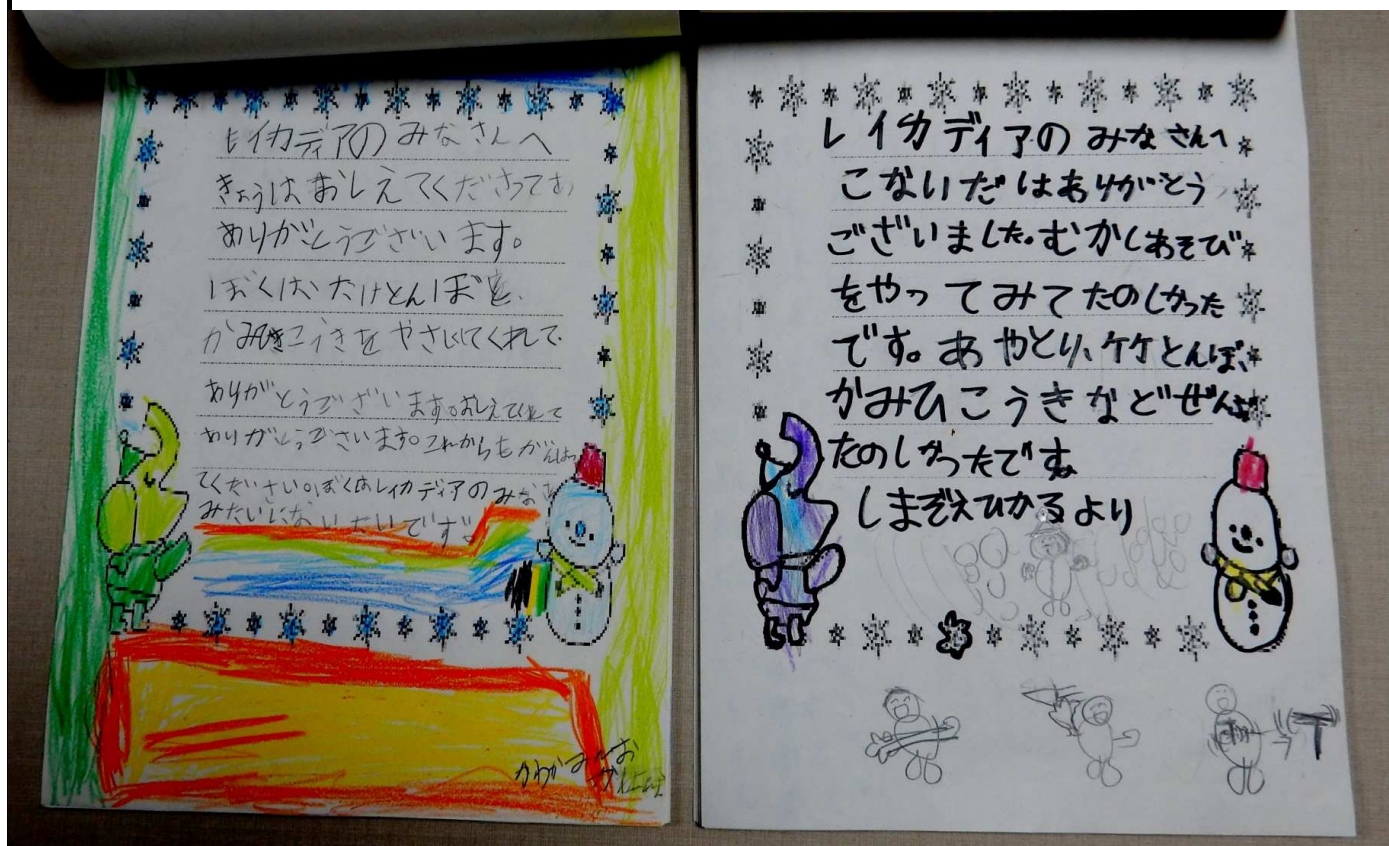 レイカディアのみなさんへ
きょうはおしえてくださってあ
ありがとうございます。
ぼくは、たけとんぼと、
かみひこうきをやさいてくれて、
ありがとうございます。おしえてくれて
ありがとうございます。これからもがんばっ
てください。ぼくはレイカディアのみなさ
みたいにないたいです。
レイカディアのみなさんへ
こないだはありがとう
ございました。むかしあそび
をやってみてたのしかった
です。あやとり、竹とんぼ、
かみひこうきなどぜんぶ
たのしかったです。
しまぞえひかるより